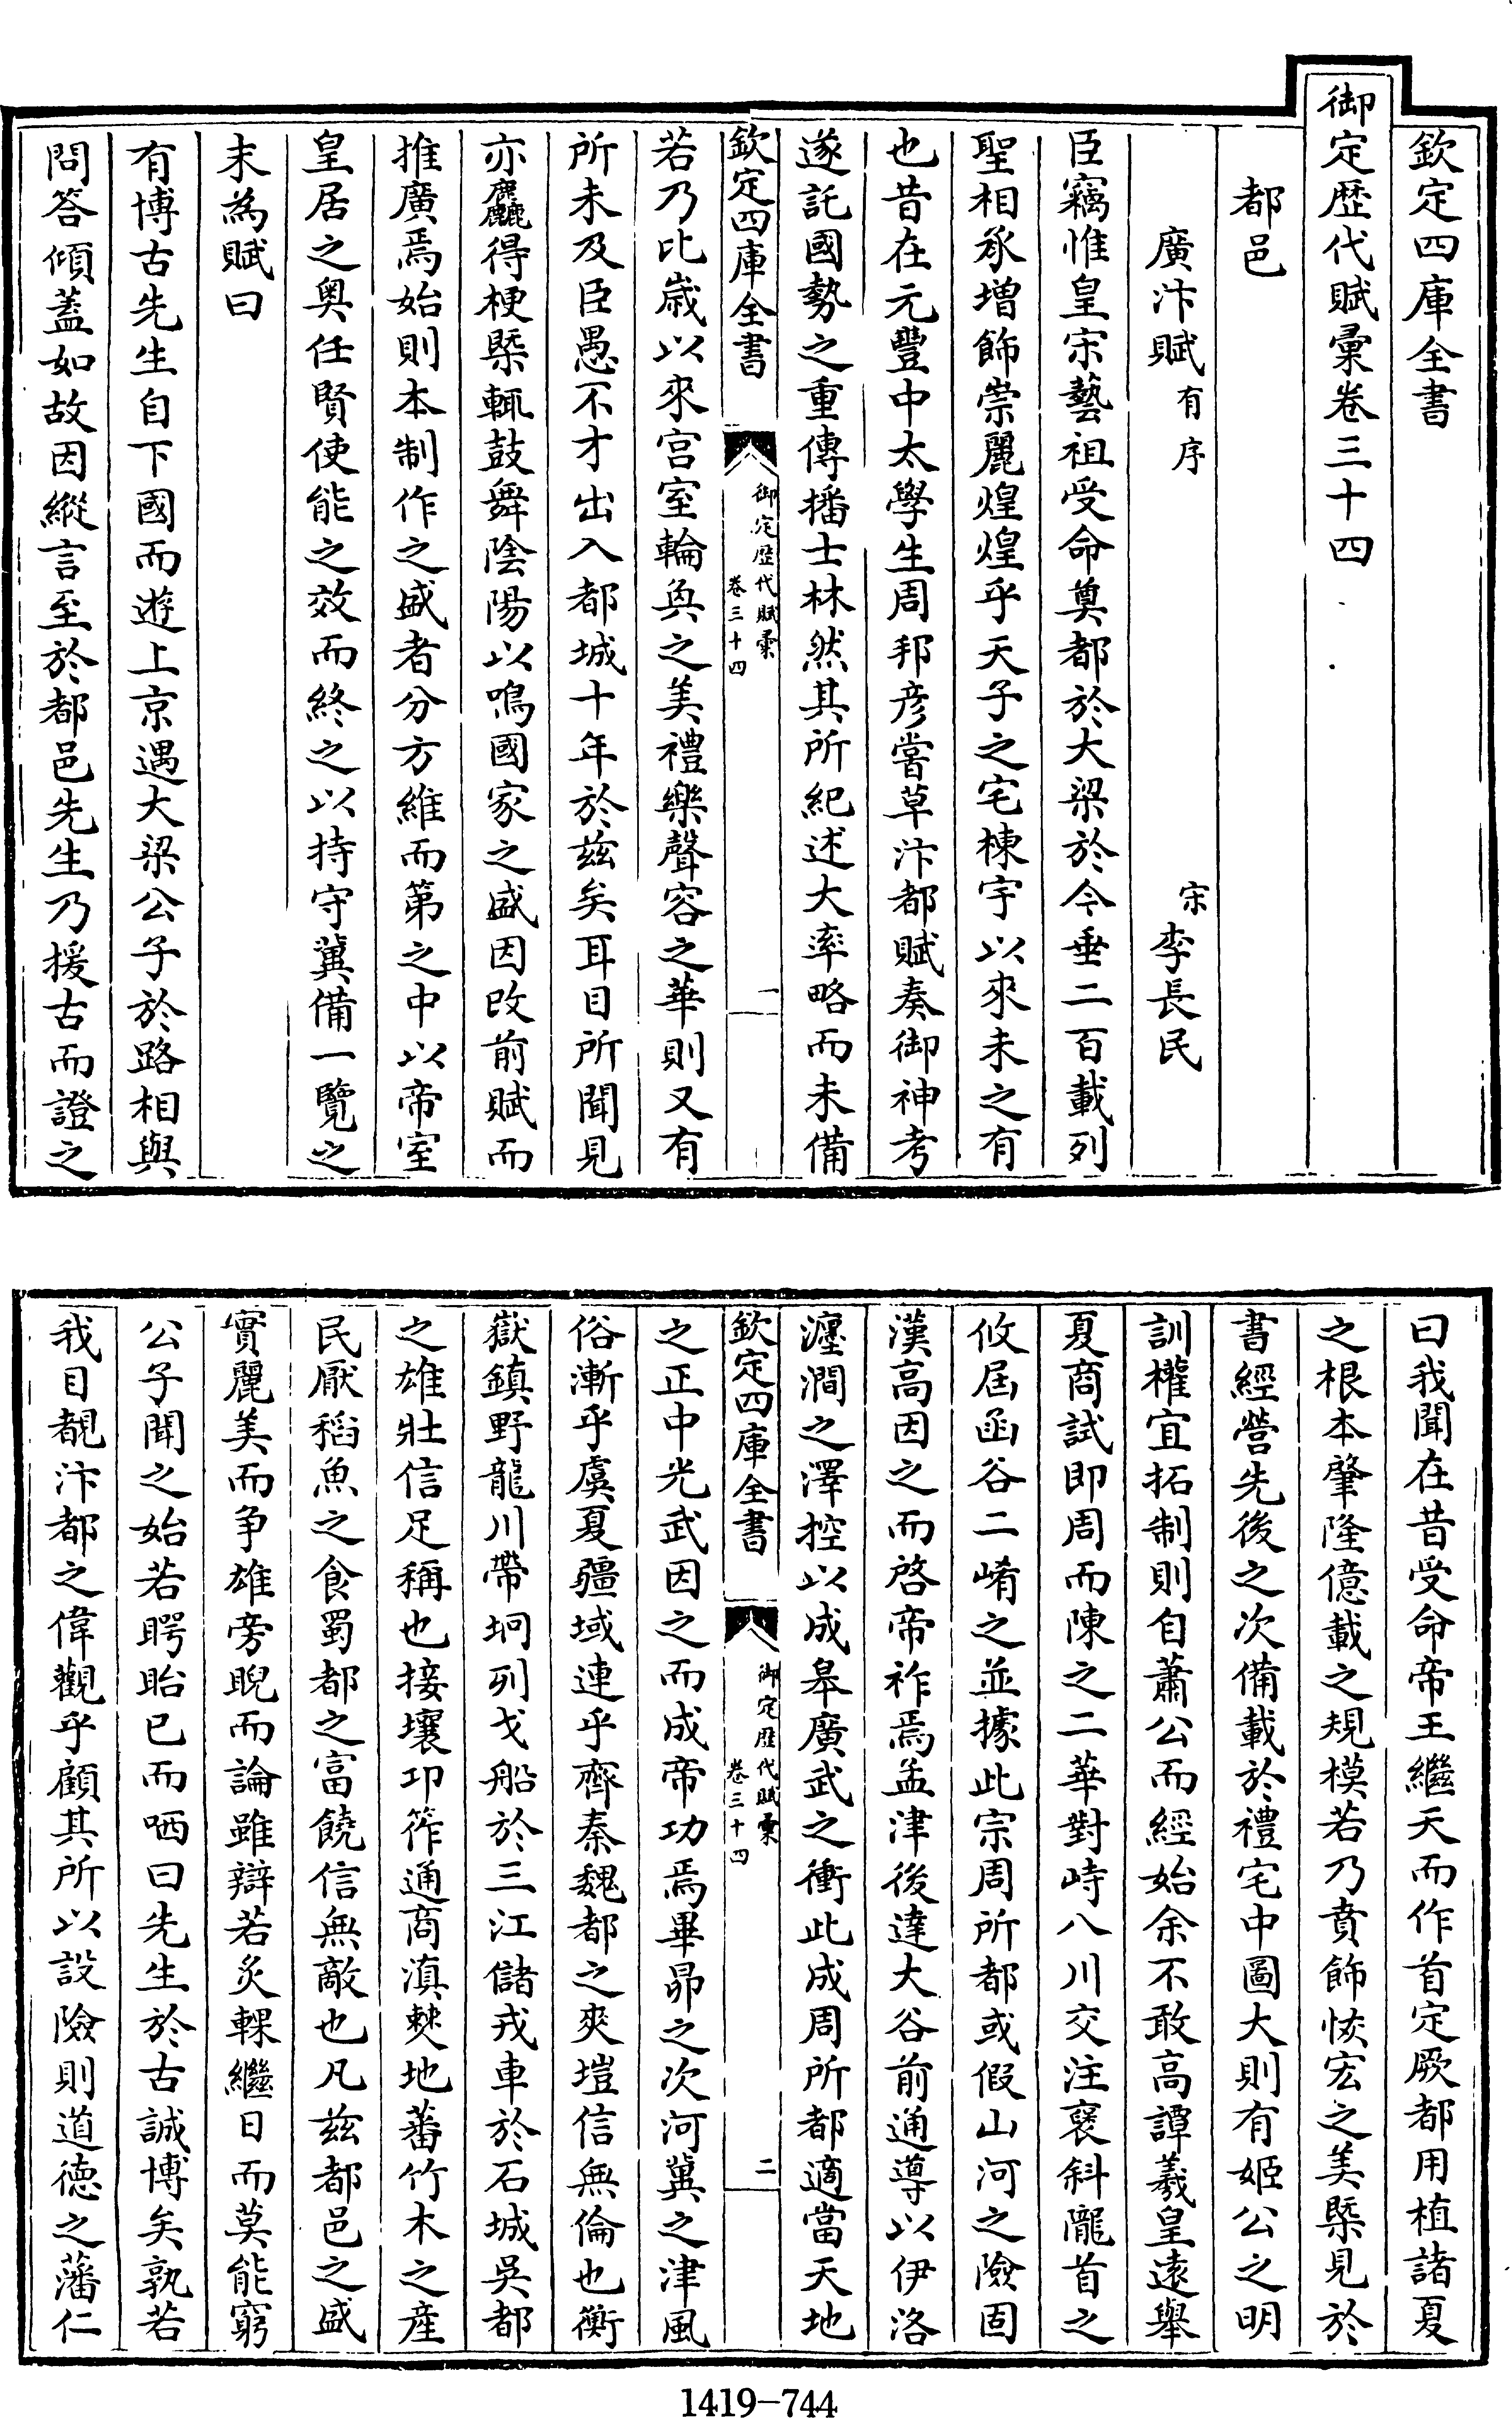 欽定四庫全書
御定歴代賦彚卷三十四
都邑
廣汴賦有序
宋李長民
臣竊惟皇宋藝祖受命奠都於大梁於今垂二百載列
聖相承增飾崇麗煌煌乎天子之宅棟宇以來未之有
也昔在元豐中太學生周邦彦嘗草汴都賦奏御神考
遂託國勢之重傳播士林然其所紀述大率略而未備
欽定四庫全書
御定歴代賦彚
卷三十四
一
若乃比嵗以來宫室輪奐之美禮樂聲容之華則又有
所未及臣愚不才出入都城十年於兹矣耳目所聞見
亦麤得梗槩輒鼓舞陰陽以鳴國家之盛因改前賦而
推廣焉始則本制作之盛者分方維而第之中以帝室
皇居之奥任賢使能之效而終之以持守冀備一覽之
末為賦曰
有博古先生自下國而遊上京遇大梁公子於路相與
問答傾蓋如故因縱言至於都邑先生乃援古而證之
曰我聞在昔受命帝王繼天而作首定厥都用植諸夏
之根本肇隆億載之規模若乃賁飾恢宏之美槩見於
書經營先後之次備載於禮宅中圖大則有姬公之明
訓權宜拓制則自蕭公而經始余不敢高譚羲皇遠舉
夏商試即周而陳之二華對峙八川交注褒斜隴首之
攸居函谷二崤之並據此宗周所都或假山河之險固
漢高因之而啓帝祚焉孟津後達大谷前通導以伊洛
瀍澗之澤控以成皋廣武之衝此成周所都適當天地
欽定四庫全書
御定歴代賦彚
卷三十四
二
之正中光武因之而成帝功焉畢昴之次河冀之津風
俗漸乎虞夏疆域連乎齊秦魏都之爽塏信無倫也衡
嶽鎮野龍川帶坰列戈船於三江儲戎車於石城吳都
之雄壯信足稱也接壤邛筰通商滇僰地蕃竹木之產
民厭稻魚之食蜀都之富饒信無敵也凡兹都邑之盛
實麗美而争雄旁睨而論雖辯若炙輠繼日而莫能窮
公子聞之始若睯眙已而哂曰先生於古誠博矣孰若
我目覩汴都之偉觀乎顧其所以設險則道德之藩仁
1419-744